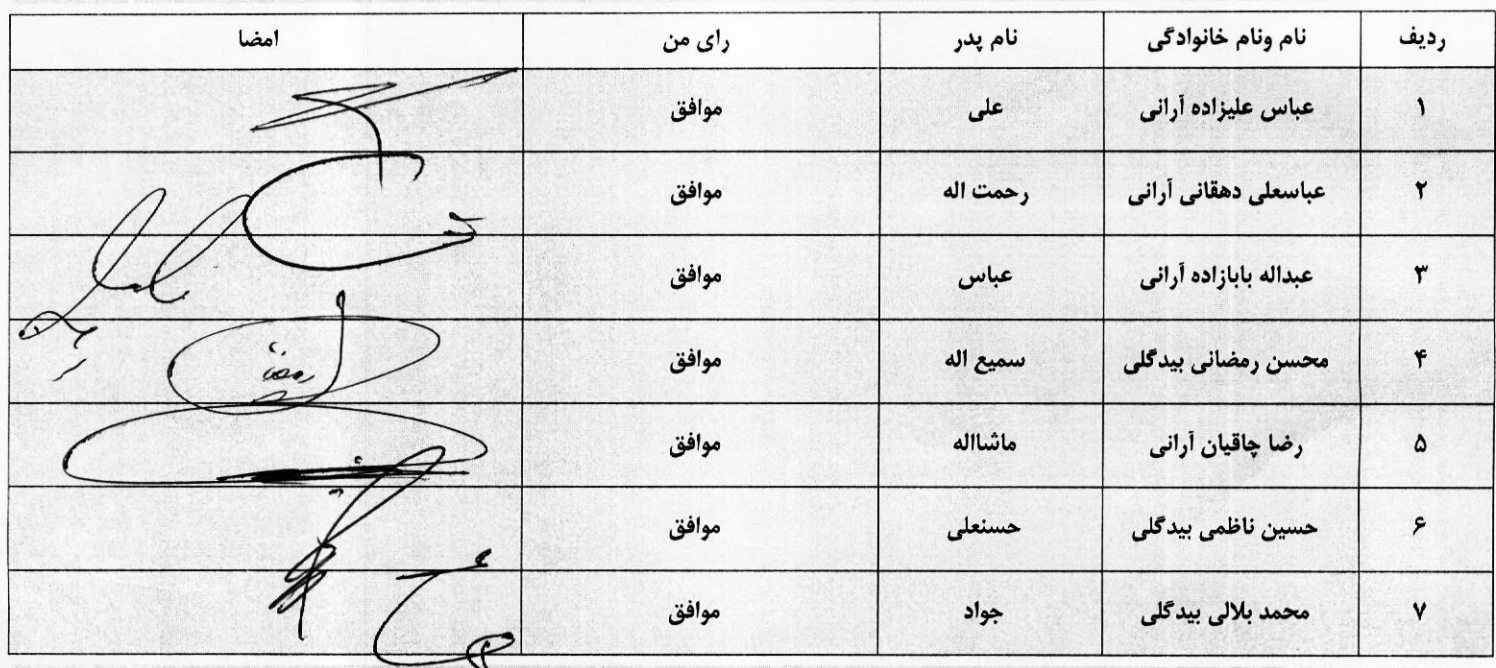 ردیف نام ونام خانوادگی نام پدر رای من امضا
۱ عباس علیزاده آرانی علی موافق
۲ عباسعلی دهقانی آرانی رحمت اله موافق
۳ عبداله بابازاده آرانی عباس موافق
۴ محسن رمضانی بیدگلی سمیع اله موافق
۵ رضا چاقیان آرانی ماشااله موافق
۶ حسین ناظمی بیدگلی حسنعلی موافق
۷ محمد بلالی بیدگلی جواد موافق